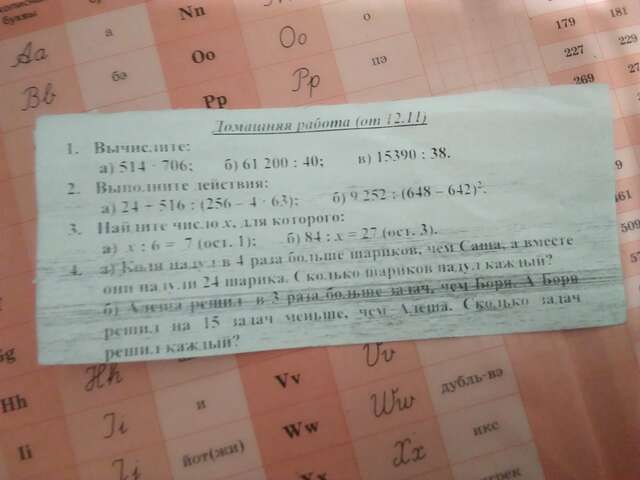 буквы
Nn
а
о
179
181
Аа
Оо
227
229
бэ
Oo
пэ
269
Bb
Pp
Pp
Домашняя работа (от 12.11)
1. Вычислите:
а) 514 · 706; б) 61 200 : 40; в) 15390 : 38.
2. Выполните действия:
а) 24 + 516 : (256 – 4 · 63); б) 9 252 : (648 – 642)².
3. Найдите число x, для которого:
а) x : 6 = 7 (ост. 1); б) 84 : x = 27 (ост. 3).
4. а) Коля надул в 4 раза больше шариков, чем Саша, а вместе
они надули 24 шарика. Сколько шариков надул каждый?
б) Алеша решил в 3 раза больше задач, чем Боря. А Боря
решил на 15 задач меньше, чем Алеша. Сколько задач
решил каждый?
461
509
Hh
Vv
Vv
дубль-вэ
Hh
и
Ww
Ww
Ii
Ii
йот(жи)
Xx
икс
Xx